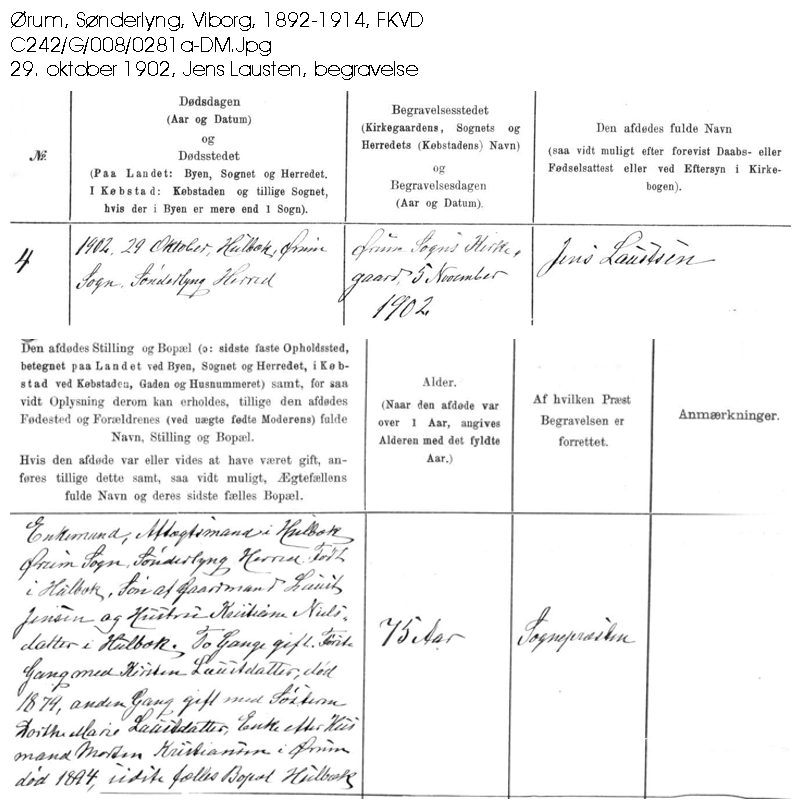 Ørum, Sønderlyng, Viborg, 1892-1914, FKVD
C242/G/008/0281a-DM.Jpg
29. oktober 1902, Jens Lausten, begravelse
№.
Dødsdagen
(Aar og Datum)
og
Dødsstedet
(Paa Landet: Byen, Sognet og Herredet.
I Købstad: Købstaden og tillige Sognet,
hvis der i Byen er mere end 1 Sogn).
Begravelsesstedet
(Kirkegaardens, Sognets og
Herredets (Købstadens) Navn)
og
Begravelsesdagen
(Aar og Datum).
Den afdødes fulde Navn
(saa vidt muligt efter forevist Daabs- eller
Fødselsattest eller ved Eftersyn i Kirke-
bogen).
4
1902. 29 Oktober, Hulbæk, Ørum
Sogn. Sønderlyng Herred
Ørum Sogns Kirke,
gaard, 5 November
1902
Jens Laustsen
Den afdødes Stilling og Bopæl (ɔ: sidste faste Opholdssted,
betegnet paa Landet ved Byen, Sognet og Herredet, i Køb-
stad ved Købstaden, Gaden og Husnummeret) samt, for saa
vidt Oplysning derom kan erholdes, tillige den afdødes
Fødested og Forældrenes (ved uægte fødte Moderens) fulde
Navn, Stilling og Bopæl.
Hvis den afdøde var eller vides at have været gift, an-
føres tillige dette samt, saa vidt muligt, Ægtefællens
fulde Navn og deres sidste fælles Bopæl.
Alder.
(Naar den afdøde var
over 1 Aar, angives
Alderen med det fyldte
Aar.)
Af hvilken Præst
Begravelsen er
forrettet.
Anmærkninger.
Enkemand, Aftægtsmand i Hulbæk
Ørum Sogn. Sønderlyng Herred. Født
i Hulbæk, Søn af Gaardmand Laust
Jensen og Hustru Kristiane Niels-
datter i Hulbæk. To Gange gift. Første
Gang med Kirsten Laustdatter, død
1879, anden Gang gift med Søsteren
Dorthe Marie Laustdatter, Enke efter Hus
mand Morten Kristiansen i Ørum
død 1894, sidste fælles Bopæl Hulbæk
75 Aar
Sognepræsten